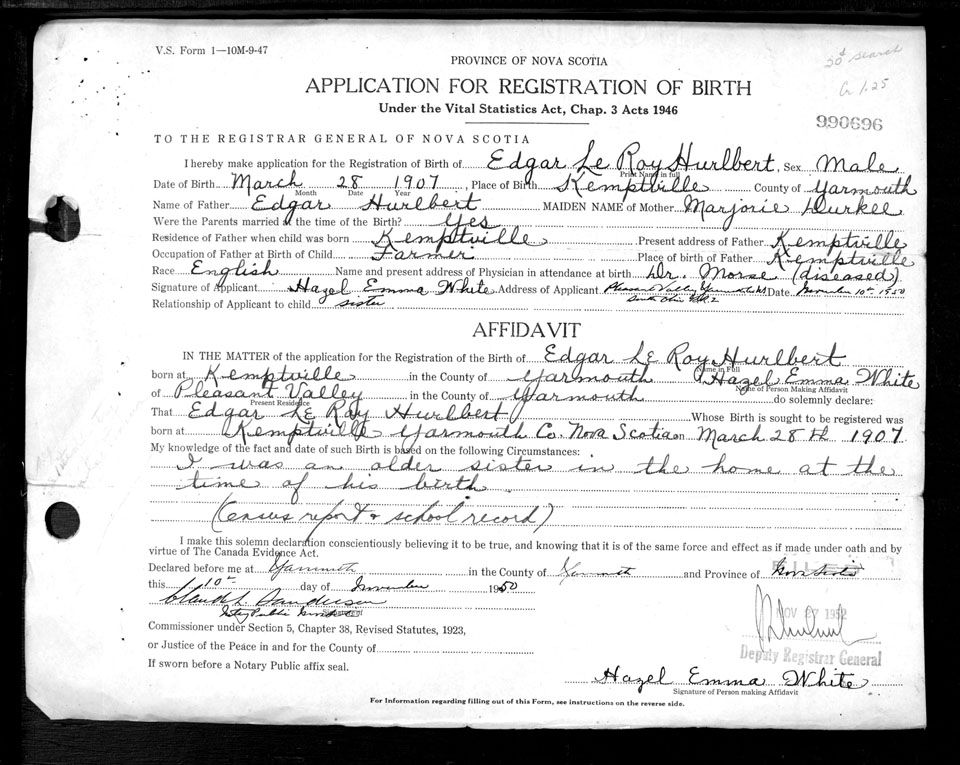 V.S. Form 1—10M-9-47
50¢ search
1.25
PROVINCE OF NOVA SCOTIA
APPLICATION FOR REGISTRATION OF BIRTH
Under the Vital Statistics Act, Chap. 3 Acts 1946
990696
TO THE REGISTRAR GENERAL OF NOVA SCOTIA
I hereby make application for the Registration of Birth of Edgar Le Roy Hurlbert, Sex Male
Print Name in full
Date of Birth March 28 1907, Place of Birth Kemptville County of Yarmouth
Month Date Year
Name of Father Edgar Hurlbert MAIDEN NAME of Mother Marjorie Durkee
Were the Parents married at the time of the Birth? Yes
Residence of Father when child was born Kemptville Present address of Father Kemptville
Occupation of Father at Birth of Child Farmer Place of birth of Father Kemptville
Race English Name and present address of Physician in attendance at birth Dr. Morse (diseased)
Signature of Applicant Hazel Emma White Address of Applicant Pleasant Valley Date November 10th 1950
Relationship of Applicant to child sister
AFFIDAVIT
IN THE MATTER of the application for the Registration of the Birth of Edgar Le Roy Hurlbert
Name in Full
born at Kemptville in the County of Yarmouth I Hazel Emma White
Name of Person Making Affidavit
of Pleasant Valley in the County of Yarmouth do solemnly declare:
Present Residence
That Edgar Le Roy Hurlbert Whose Birth is sought to be registered was
born at Kemptville Yarmouth Co. Nova Scotia on March 28th 1907
My knowledge of the fact and date of such Birth is based on the following Circumstances:
I was an older sister in the home at the
time of his birth
(Census report & school record)
I make this solemn declaration conscientiously believing it to be true, and knowing that it is of the same force and effect as if made under oath and by
virtue of The Canada Evidence Act.
Declared before me at Yarmouth in the County of Yarmouth and Province of Nova Scotia
FILED
this 10th day of November 1950
NOV 07 1952
Notary Public
Commissioner under Section 5, Chapter 38, Revised Statutes, 1923,
or Justice of the Peace in and for the County of
Deputy Registrar General
If sworn before a Notary Public affix seal.
Hazel Emma White
Signature of Person making Affidavit
For Information regarding filling out of this Form, see instructions on the reverse side.